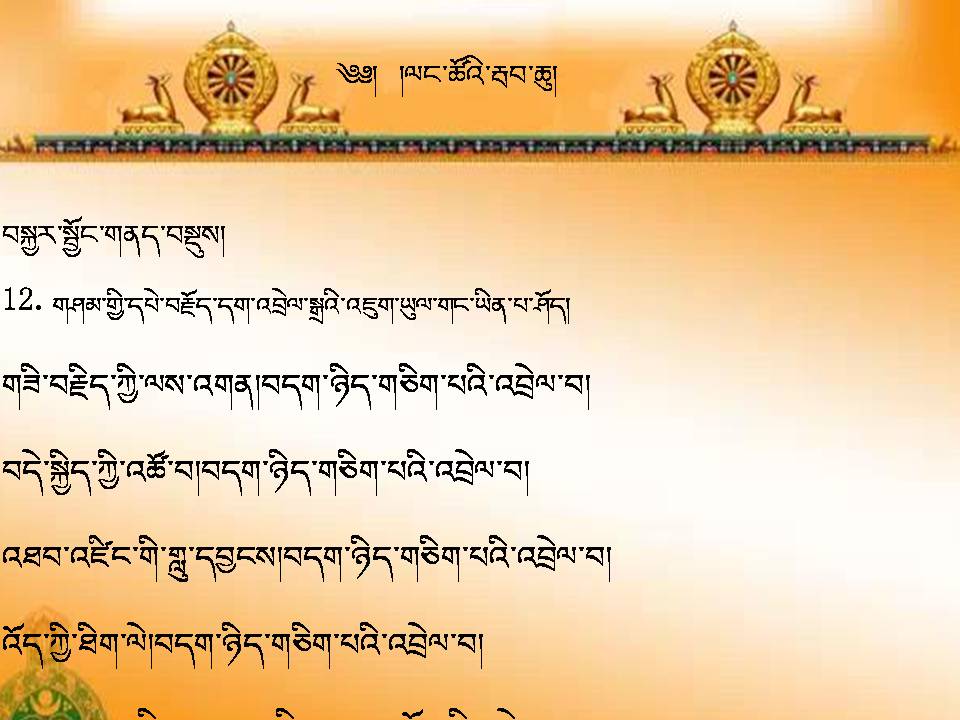 ༄༅། །ལང་ཚོའི་རྦབ་ཆུ།
བསྐྱར་སྦྱོང་གནད་བསྡུས།
12. གཤམ་གྱི་དཔེ་བརྗོད་དག་འབྲེལ་སྒྲའི་འཇུག་ཡུལ་གང་ཡིན་པ་ཤོད།
གཟི་བརྗིད་ཀྱི་ལས་འགན།བདག་ཉིད་གཅིག་པའི་འབྲེལ་བ།
བདེ་སྐྱིད་ཀྱི་འཚོ་བ།བདག་ཉིད་གཅིག་པའི་འབྲེལ་བ།
འཐབ་འཛིང་གི་གླུ་དབྱངས།བདག་ཉིད་གཅིག་པའི་འབྲེལ་བ།
འོད་ཀྱི་ཐིག་ལེ།བདག་ཉིད་གཅིག་པའི་འབྲེལ་བ།